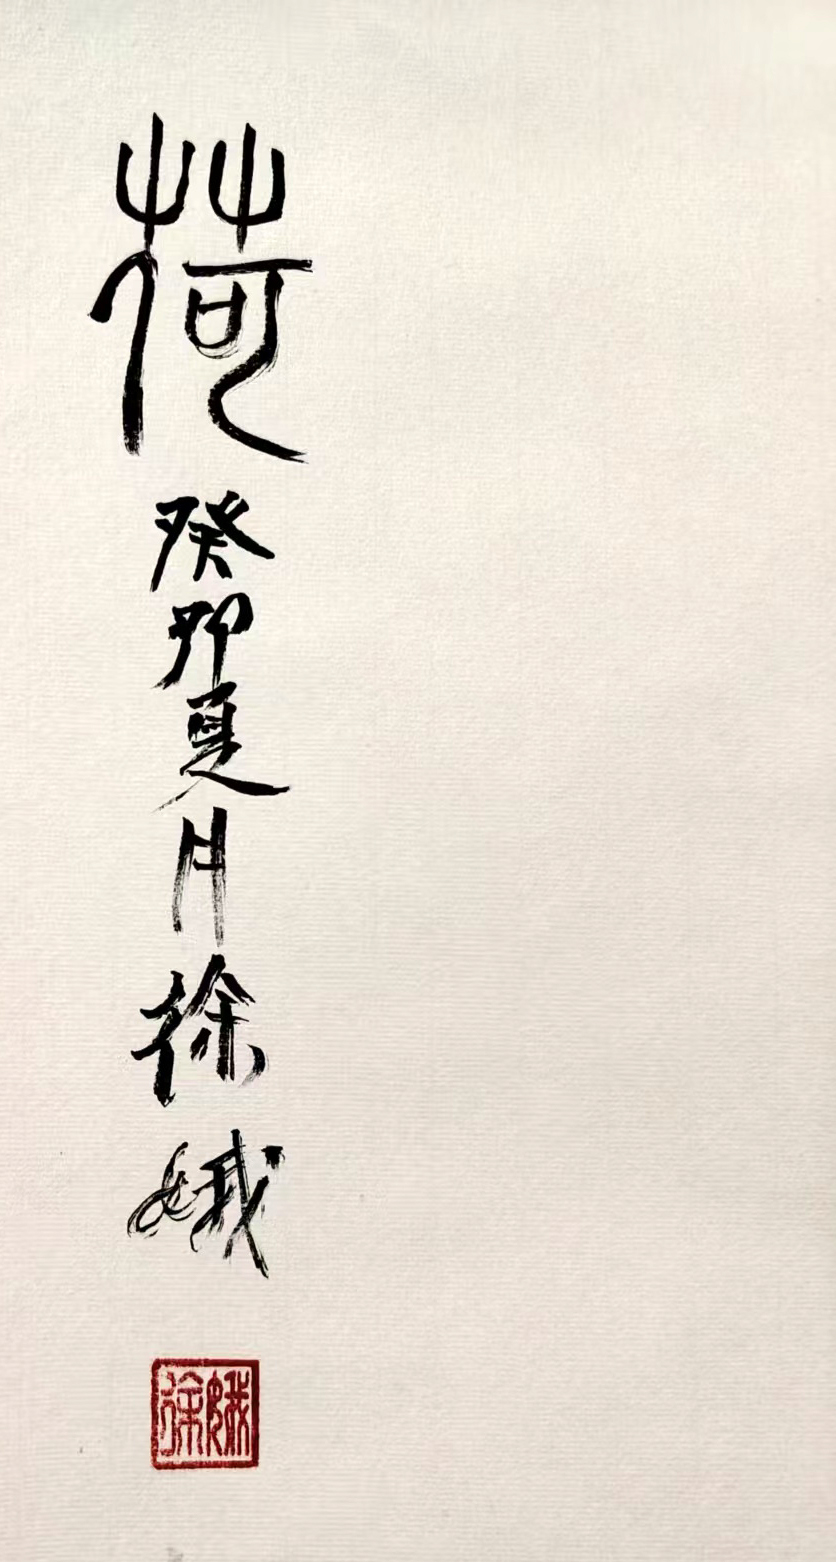 荷
癸卯夏月徐娥
徐娥